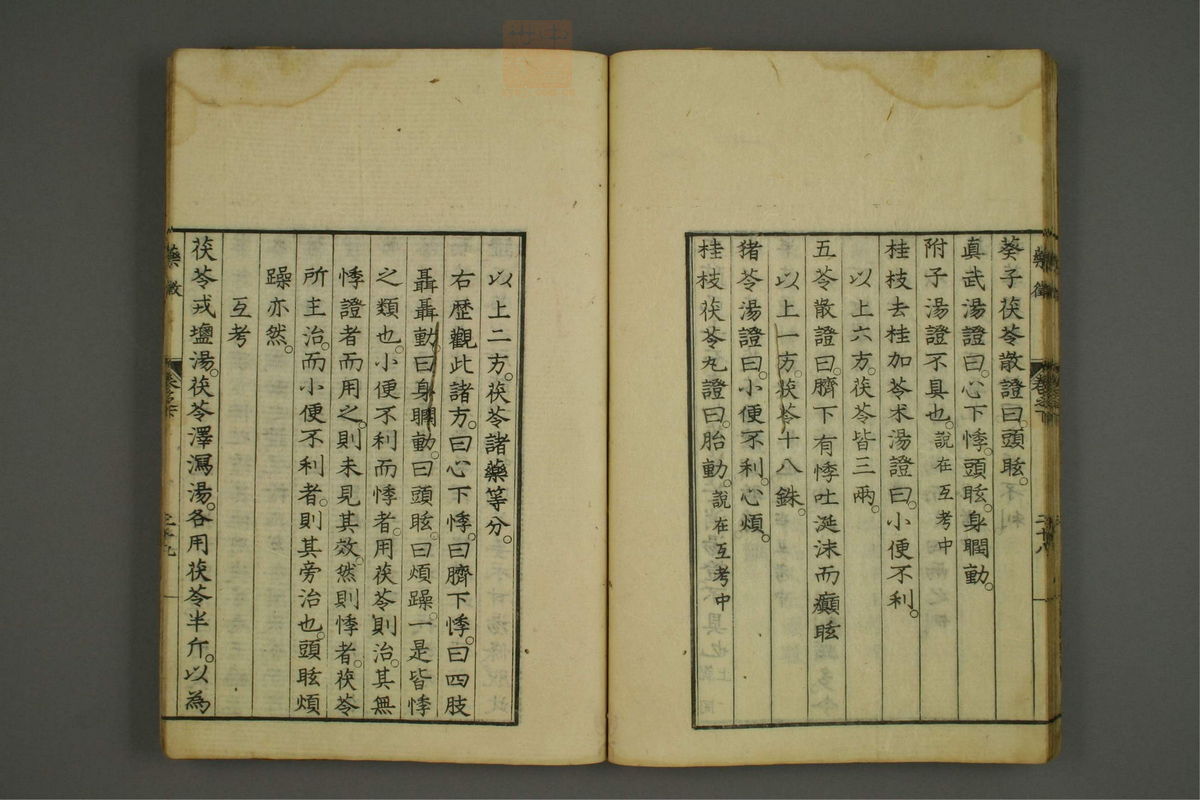 藥徵
卷之下
二十八
葵子茯苓散證曰。頭眩。
真武湯證曰。心下悸。頭眩。身瞤動。
附子湯證不具也。說在互考中
桂枝去桂加苓朮湯證曰。小便不利。
以上六方。茯苓皆三兩。
五苓散證曰。臍下有悸吐涎沫而癲眩
以上一方。茯苓十八銖。
猪苓湯證曰。小便不利。心煩。
桂枝茯苓丸證曰。胎動。說在互考中
以上二方。茯苓諸藥等分。
右歷觀此諸方。曰心下悸。曰臍下悸。曰四肢
聶聶動。曰身瞤動。曰頭眩。曰煩躁。一是皆悸
之類也。小便不利而悸者。用茯苓則治。其無
悸證者而用之。則未見其效。然則悸者。茯苓
所主治。而小便不利者。則其旁治也。頭眩煩
躁亦然。
互考
茯苓戎鹽湯。茯苓澤瀉湯。各用茯苓半斤。以為
藥徵
卷之下
二十九